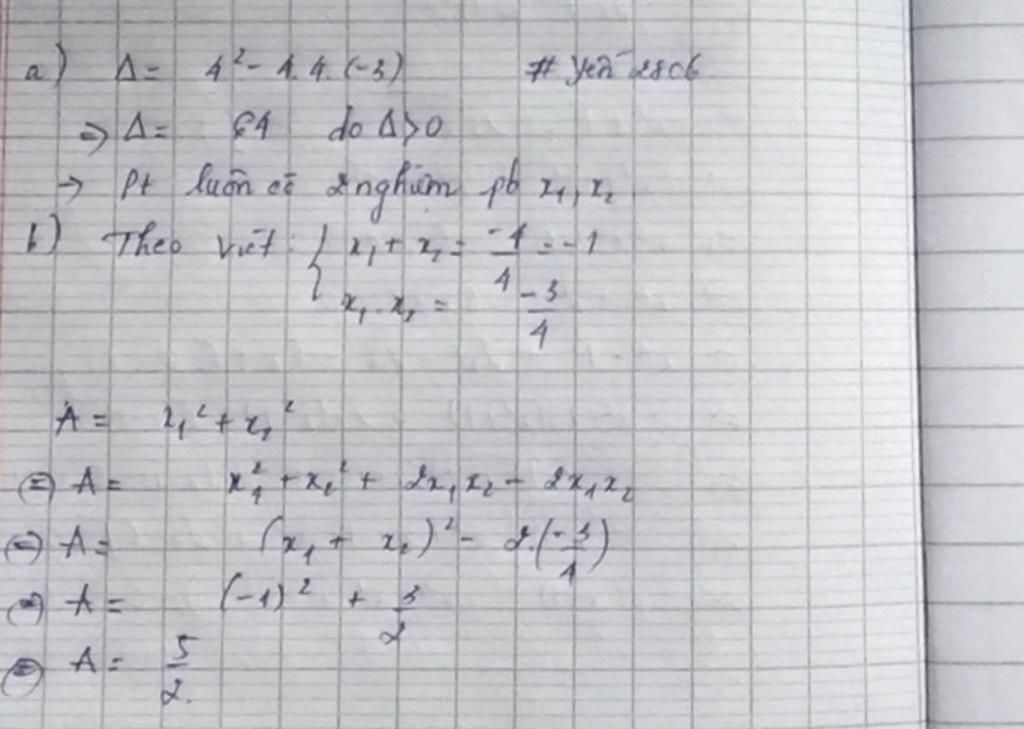 a) Δ = 4² - 4.4.(-3) # Yến 2806
=> Δ = 64 do Δ>0
-> Pt luôn có 2 nghiệm pb x₁, x₂
b) Theo Viét: { x₁ + x₂ = -4/4 = -1
x₁ . x₂ = -3/4
A = x₁² + x₂²
(=) A = x₁² + x₂² + 2x₁x₂ - 2x₁x₂
(=) A = (x₁ + x₂)² - 2.(-3/4)
(=) A = (-1)² + 3/2
(=) A = 5/2.